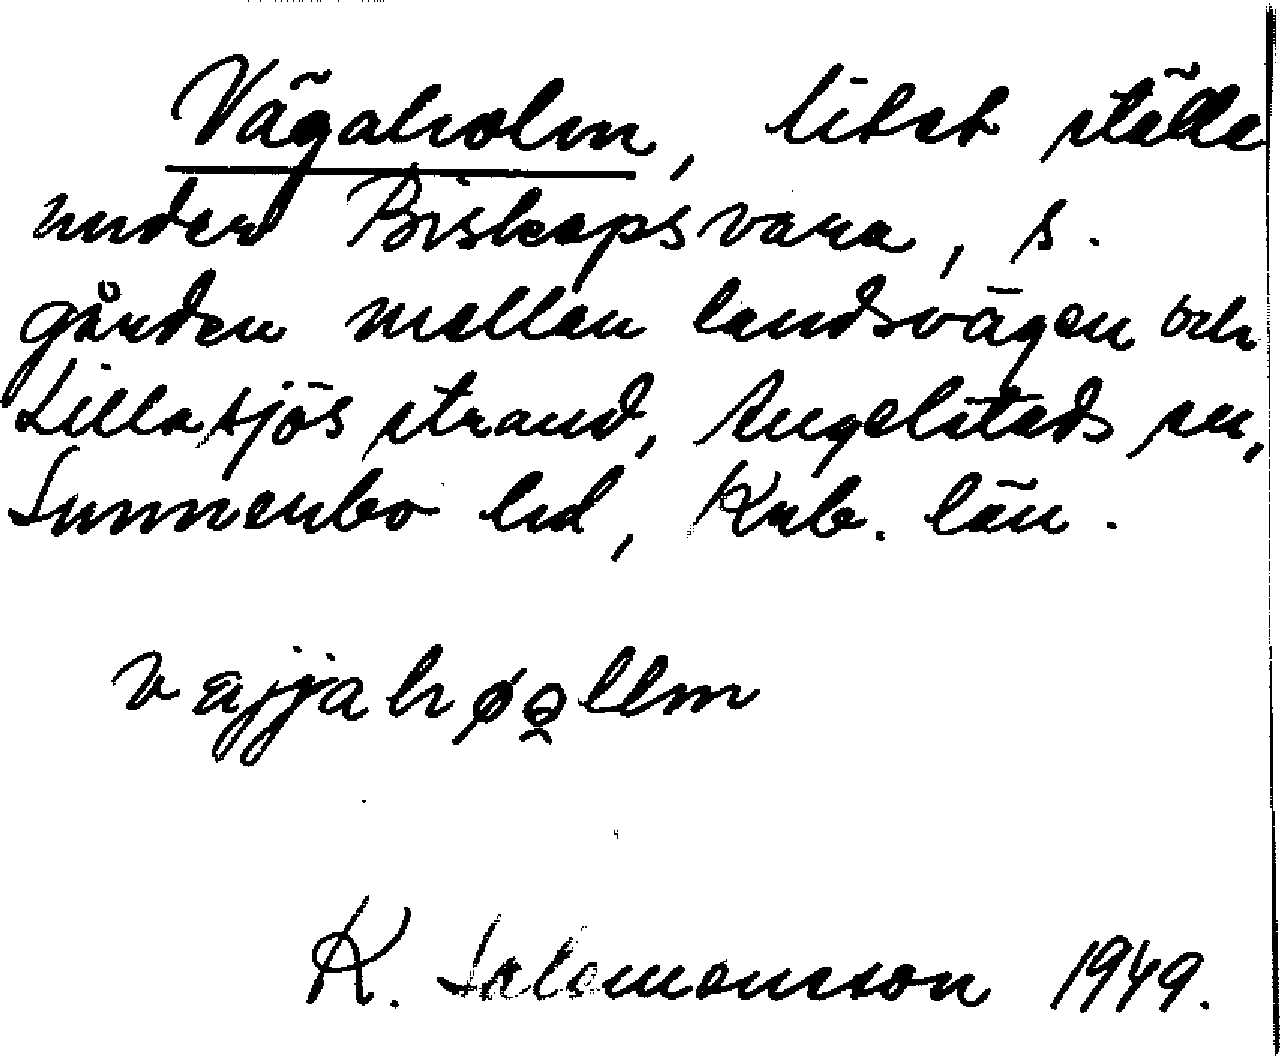 Vägaholm, litet ställe
under Biskopsvara, s.
gården mellan landsvägen och
Lillasjös strand, Angelstads sn,
Sunnerbo hd, Krb. län.
vajjahøollm
K. Salomonsson 1949.